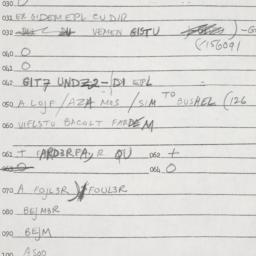 030.
031. EX GIDEMEPL CU DIR
032 VEMEN GISTU -G
(-156091
040. O
041. O
042. GIT7 UNDZ2-/D1 EPL
050 A LOJF / AZA MOS / SIM TO BUSHEL (126
060 VIFLSTU BACOLT FARDEM
061. T (ARD3RFA, R QU 062. +
063. O 064. O
070 A FOJL3R / FOUL3R
080 BEJM3R
090 BEJM
100 ASOO